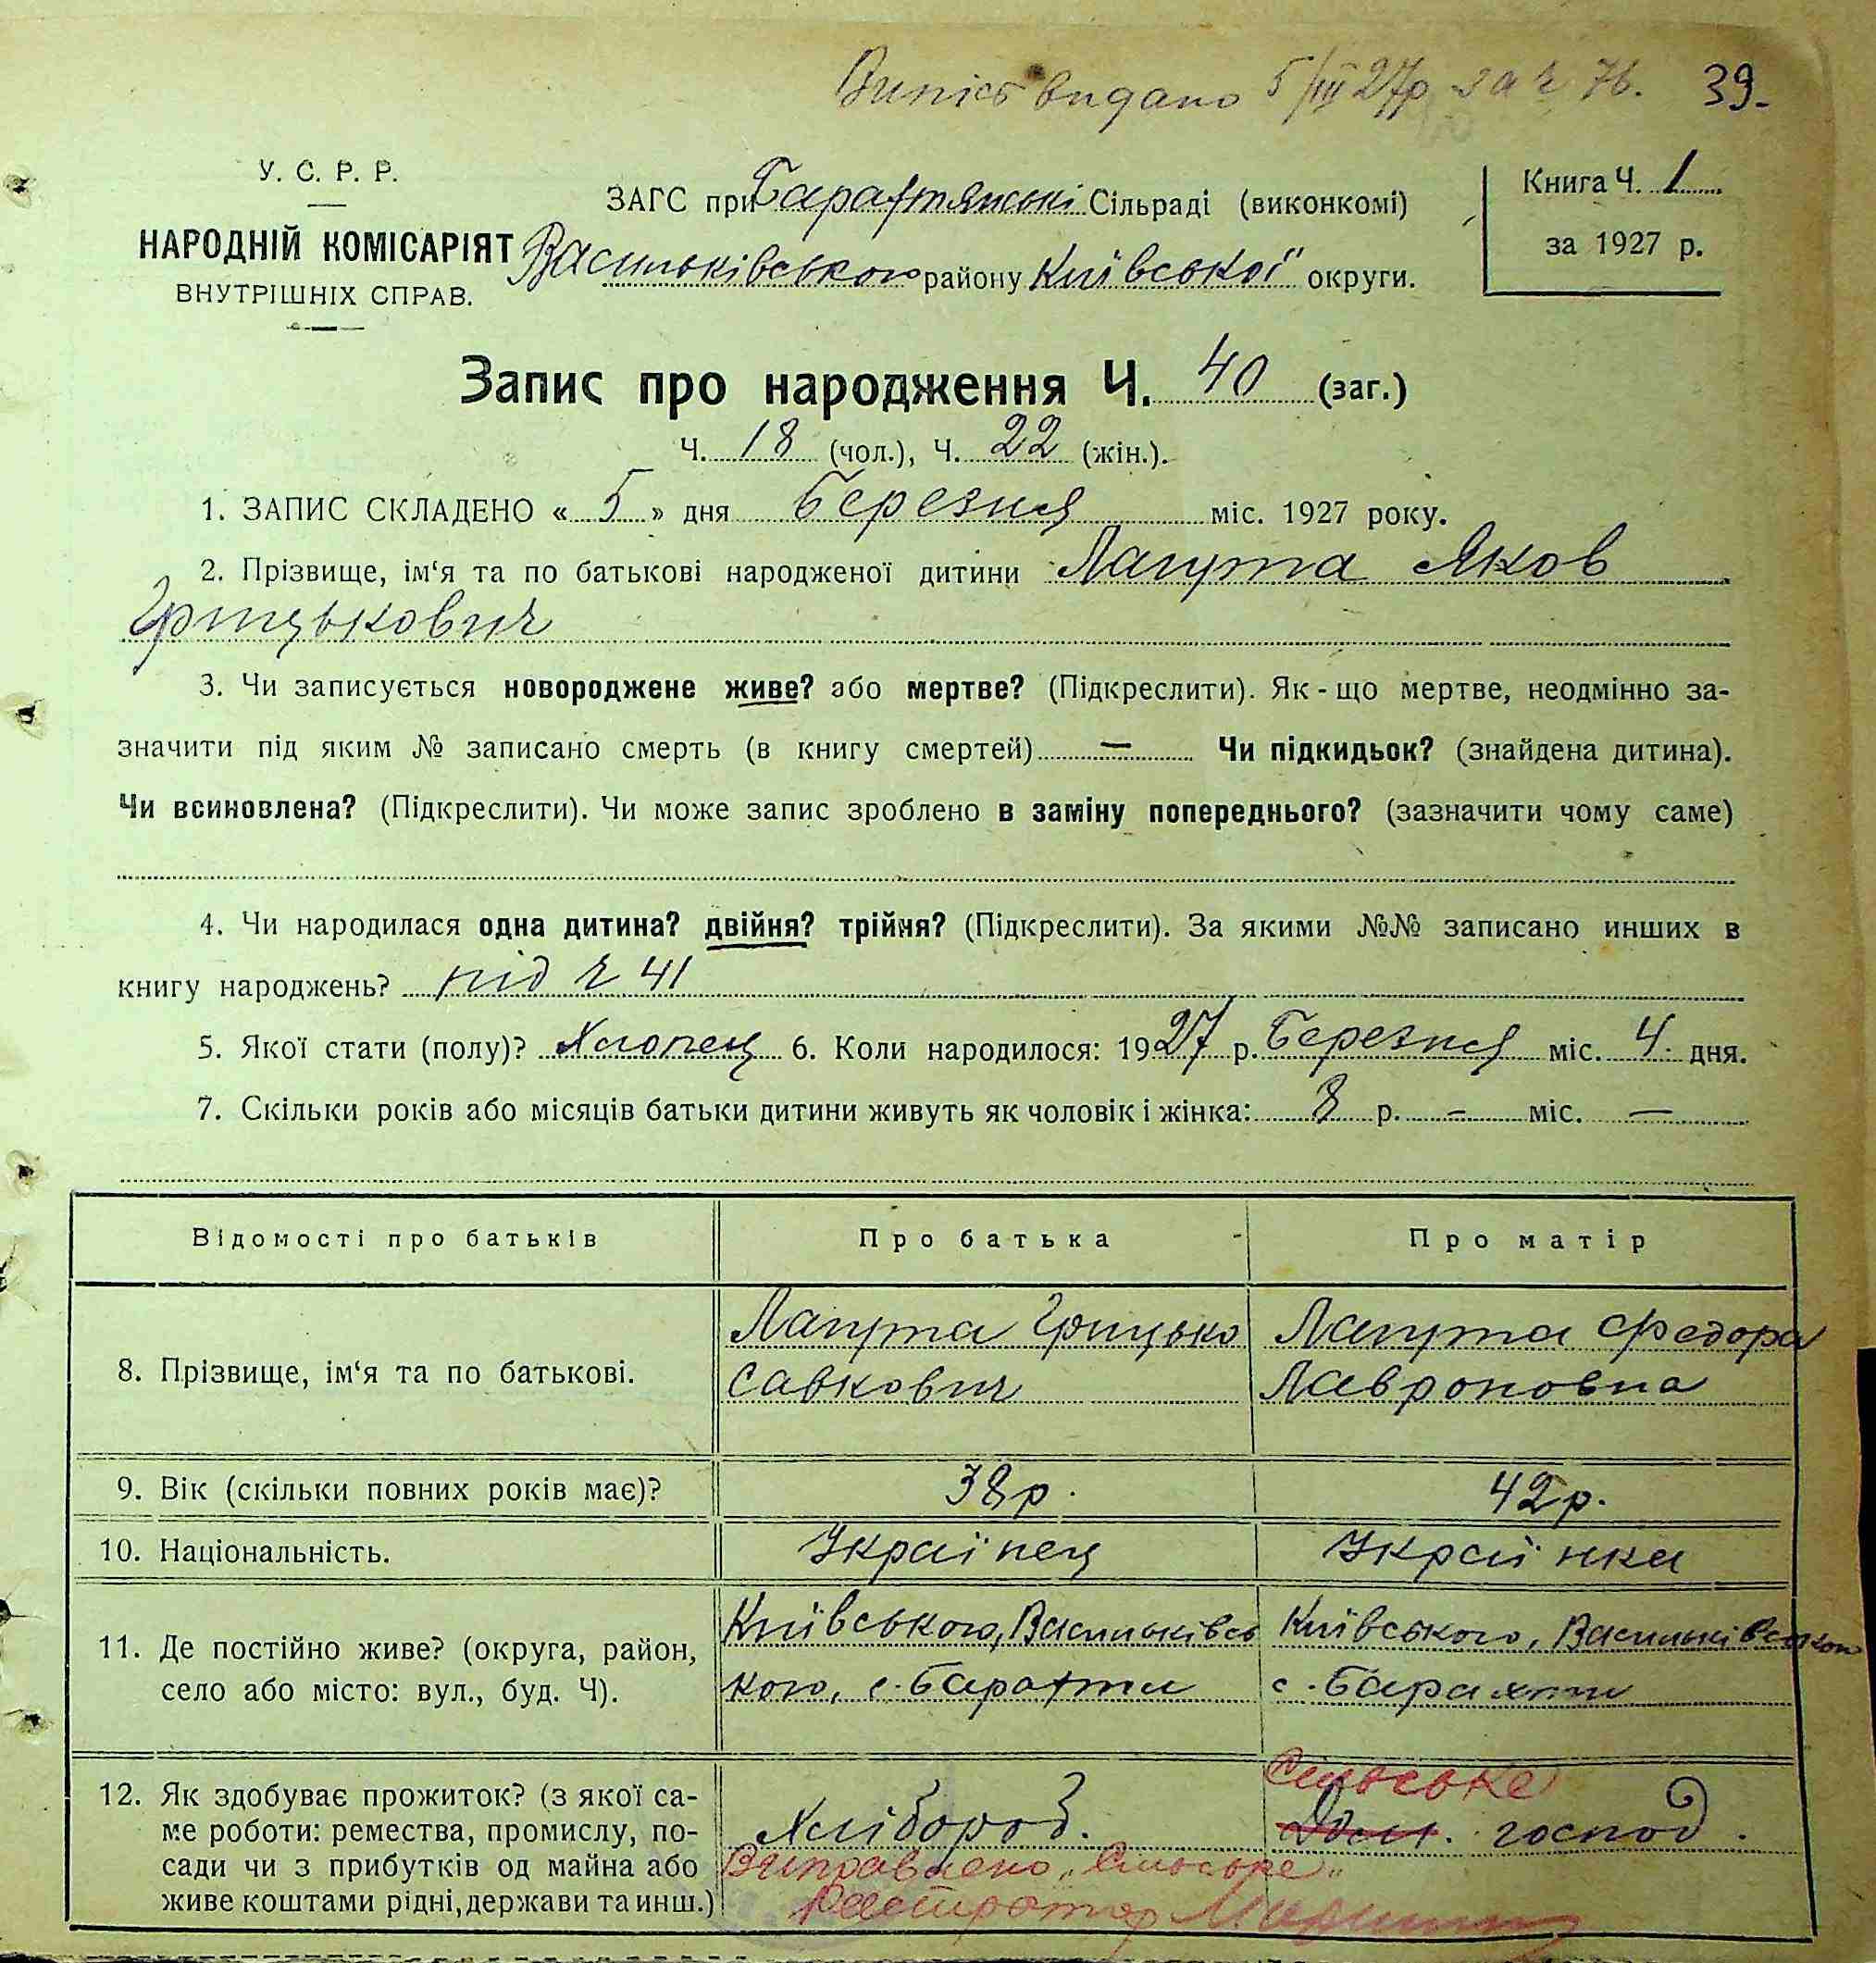 Випис видано 5/III 27р за ч 76. 39.
У. С. Р. Р.
ЗАГС при Барахтянські Сільраді (виконкомі)
Книга Ч. 1
НАРОДНІЙ КОМІСАРІЯТ
Васильківського району Київської округи.
за 1927 р.
ВНУТРІШНІХ СПРАВ.
Запис про народження Ч. 40 (заг.)
Ч. 18 (чол.), Ч. 22 (жін.).
1. ЗАПИС СКЛАДЕНО « 5 » дня Березня міс. 1927 року.
2. Прізвище, ім‘я та по батькові народженої дитини Лапута Яков
Грицькович
3. Чи записується новороджене живе? або мертве? (Підкреслити). Як-що мертве, неодмінно за-
значити під яким № записано смерть (в книгу смертей) — Чи підкидьок? (знайдена дитина).
Чи всиновлена? (Підкреслити). Чи може запис зроблено в заміну попереднього? (зазначити чому саме)
4. Чи народилася одна дитина? двійня? трійня? (Підкреслити). За якими №№ записано инших в
книгу народжень? під ч 41
5. Якої стати (полу)? Хлопец 6. Коли народилося: 1927 р. Березня міс. 4 дня.
7. Скільки років або місяців батьки дитини живуть як чоловік і жінка: 8 р. — міс. —
Відомості про батьків
Про батька
Про матір
8. Прізвище, ім‘я та по батькові.
Лапута Грицько
Савкович
Лапута Федора
Лавроновна
9. Вік (скільки повних років має)?
38 р.
42 р.
10. Національність.
Украінец
Украінка
11. Де постійно живе? (округа, район,
село або місто: вул., буд. Ч).
Київського, Васильківсь
кого, с. Барахти
Київського, Васильківського
с. Барахти
12. Як здобуває прожиток? (з якої са-
ме роботи: ремества, промислу, по-
сади чи з прибутків од майна або
живе коштами рідні, держави та инш.)
Хлібороб.
Сільське
Дом. господ.
Виправлено „Сільське“
Реєстратор